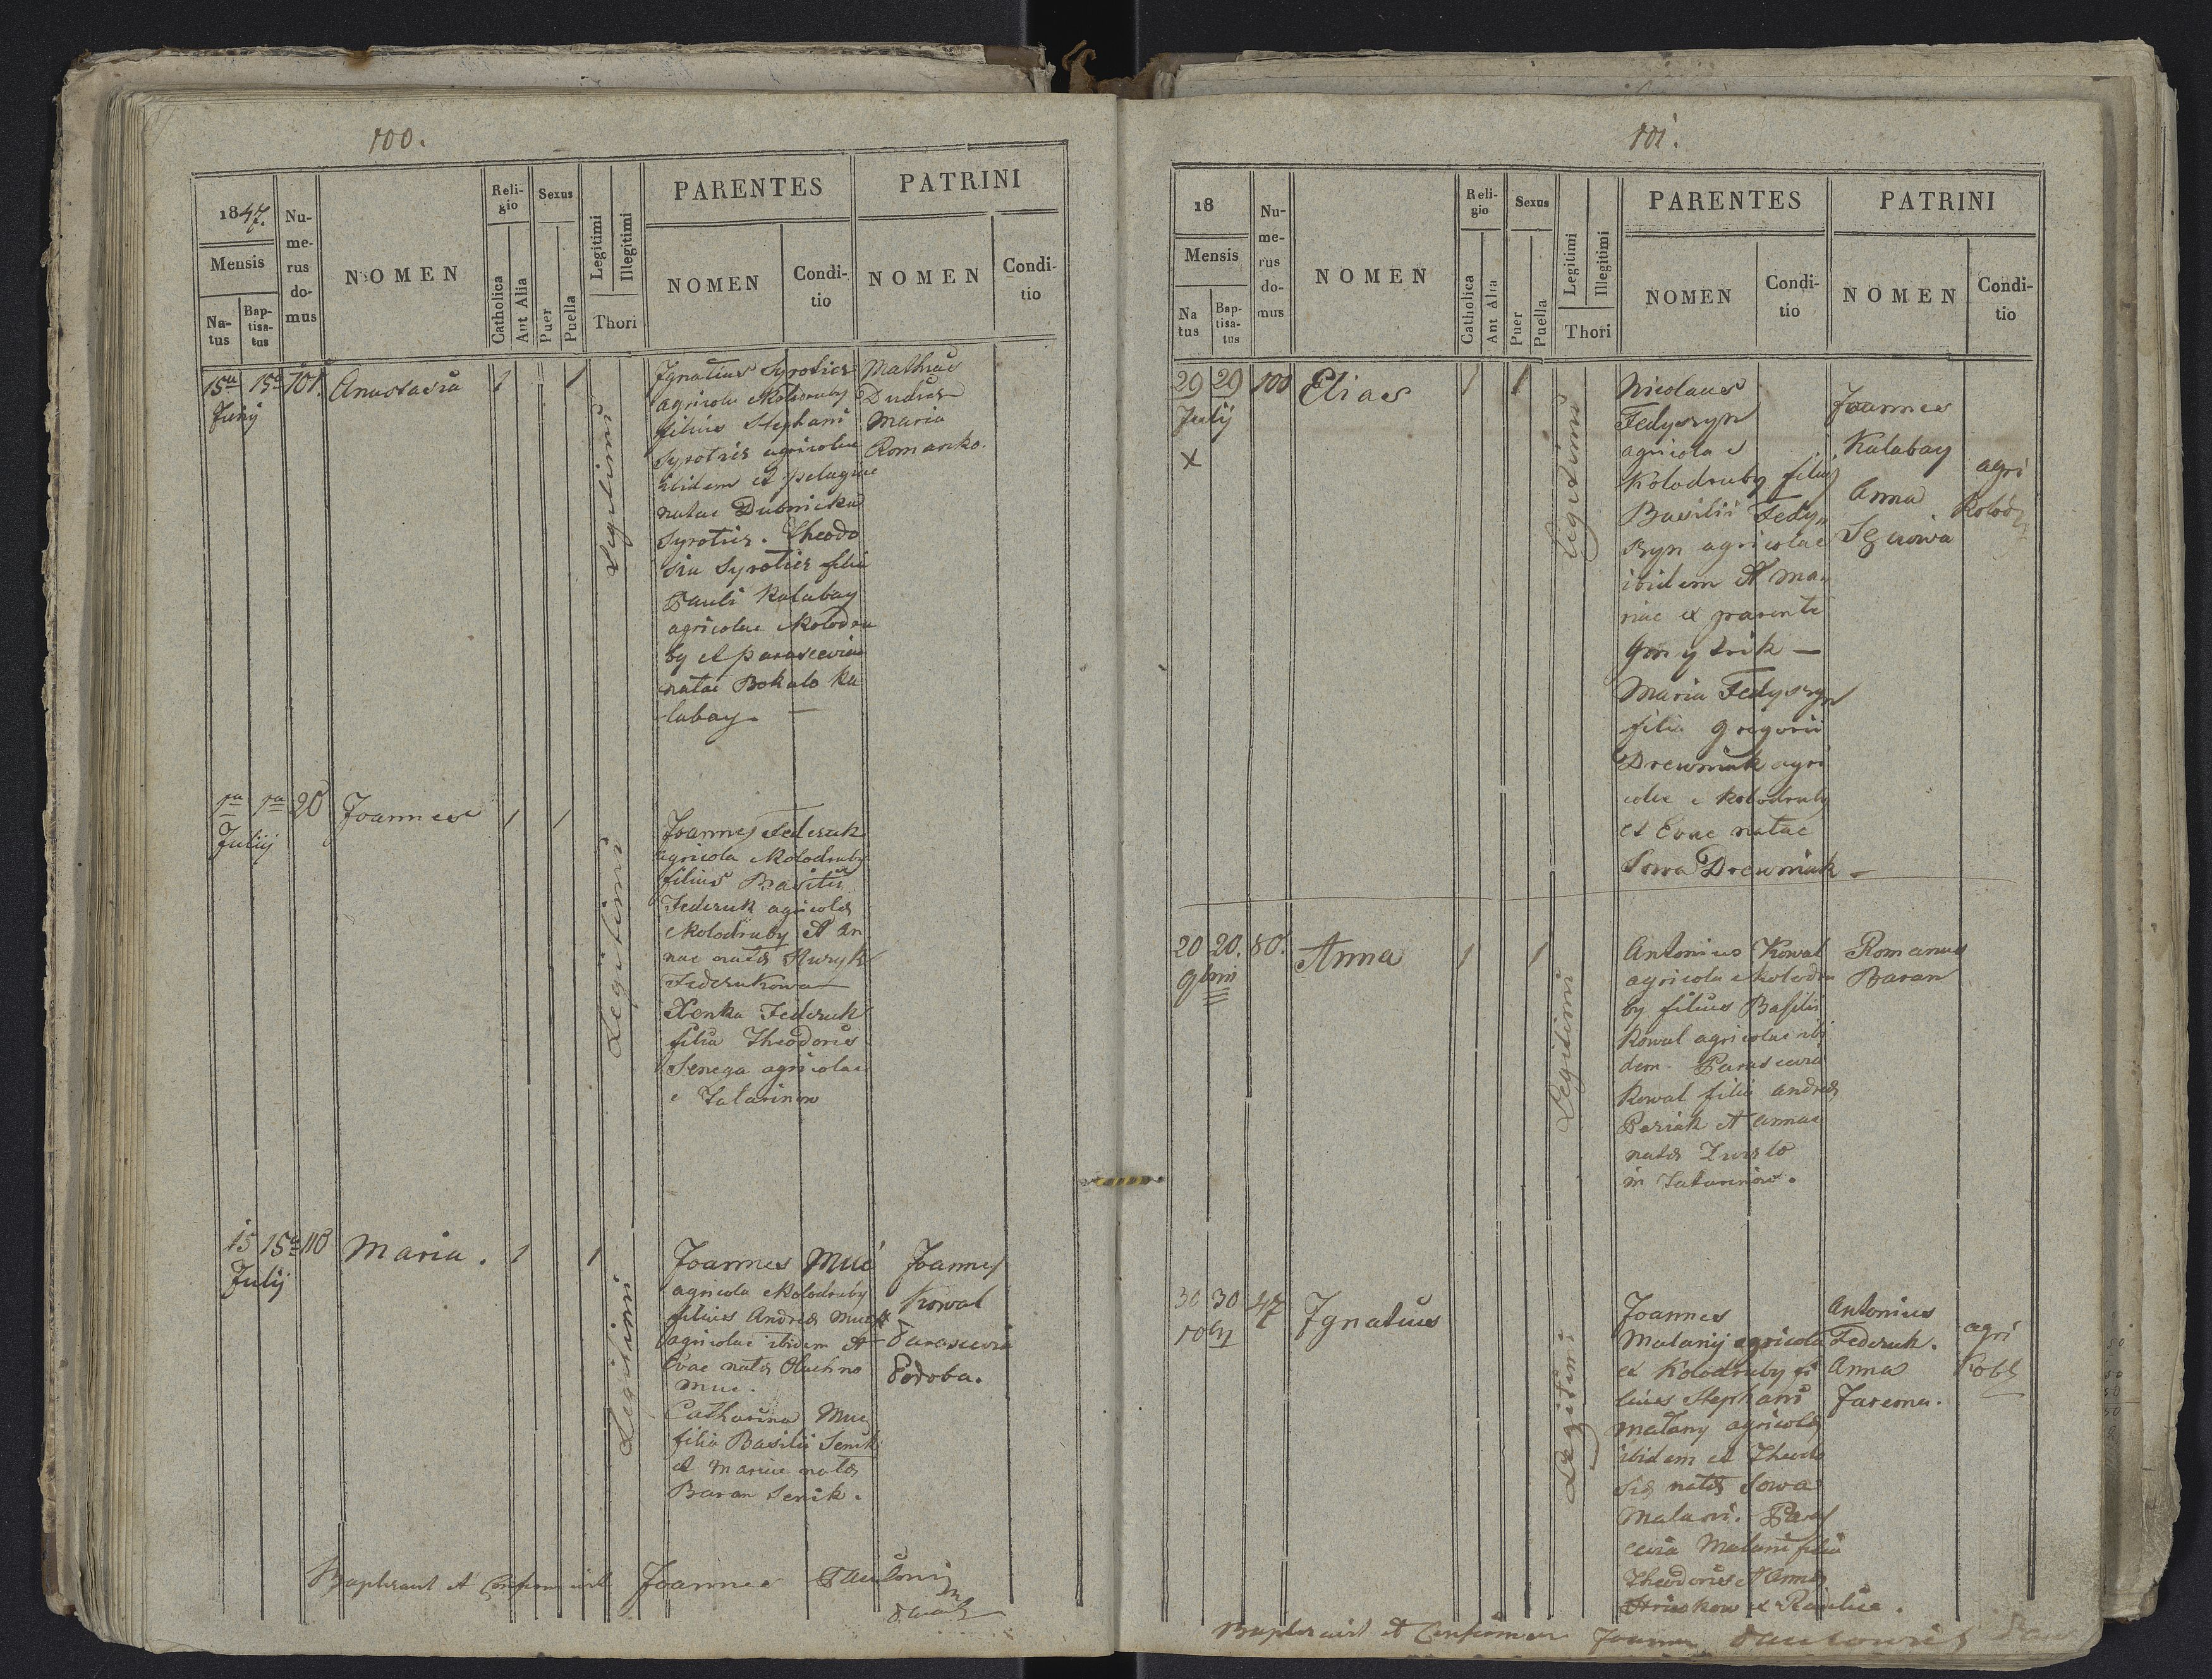 100.
1847.
Mensis
Na-
tus
Bap-
tisa-
tus
Nu-
me-
rus
do-
mus
NOMEN
Reli-
gio
Catholica
Aut Alia
Sexus
Puer
Puella
Legitimi
Illegitimi
Thori
PARENTES
NOMEN
Condi-
tio
PATRINI
NOMEN
Condi-
tio
15a 15a 101. Anastasia 1 1
Junij
Legitimi
Ignatius Syrotier
agricola e Kolodruby
filius Stephani
Syrotier agricolae
ibidem et Pelagiae
natae Dubnicka
Syrotier. Theodo
sia Syrotier filia
Pauli Kalabay
agricolae e Kolodru
by et Parasceviae
natae Bokalo Ka
labay. —
Mathias
Maria
Romanko.
1a 1a 20 Joannes 1 1
Julij
Legitimi
Joannes Federuk
agricola e Kolodruby
filius Basilii
Federuk agricolae
e Kolodruby et An
nae natae
Federukowa
Xenka Federuk
filia Theodoris
Senega agricolae
e Tatarinow
15 15a 110 Maria. 1 1
Julij
Legitimi
Joannes Muc
agricola e Kolodruby
filius Andreae
agricolae ibidem et
Evae natae Oluchno
Muc.
Catharina Muc
filia Basilii Senik
et Mariae natae
Baran Senik.
Joannes
Kowal
Parascevia
Podoba.
Baptisavit et Confirmavit Joannes
101.
18
Mensis
Na
tus
Bap-
tisa-
tus
Nu-
me-
rus
do-
mus
NOMEN
Reli-
gio
Catholica
Aut Alia
Sexus
Puer
Puella
Legitimi
Illegitimi
Thori
PARENTES
NOMEN
Condi-
tio
PATRINI
NOMEN
Condi-
tio
29 29 100 Elias 1 1
Julij
X
Legitimi
Nicolaus
Fedyszyn
agricola e
Kolodruby filius
Basilii Fedy
szyn agricolae
ibidem et Ma
riae ex parente
—
Maria Fedyszyn
filia Gregorii
Drewniak agri
colae e Kolodruby
et Evae natae
Sowa Drewniak —
Joannes
Kalabay
Anna
agri
20 20. 80. Anna 1 1
9bris
Legitimi
Antonius Kowal
agricola e Kolodru
by filius Basilii
Kowal agricolae ibi
dem. Parascevia
Kowal filia Andreae
et Annae
natae
in Tatarinow.
Romanus
Baran
30 30 47 Ignatius
Legitimi
Joannes
Malanij agricola
ex Kolodruby fi
lius Stephani
Malany agricolae
ibidem et Theodo
siae natae Sowa
Malani. Paras
cevia Malani filia
Theodoris et Annae
Antonius
Federuk.
Anna
Jarema.
agri
Baptisavit et Confirmav Joannes